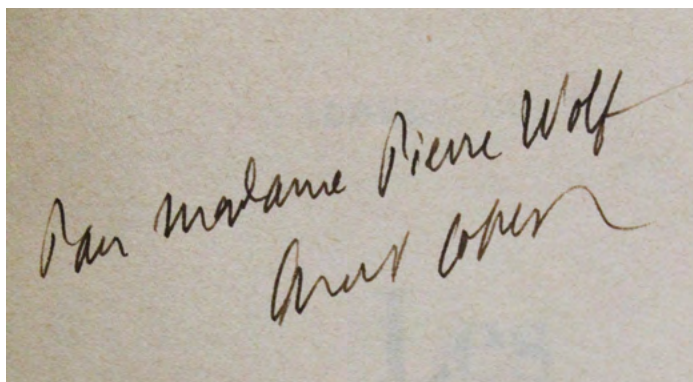 Pour madame Pierre Wolf
Albert Cohen